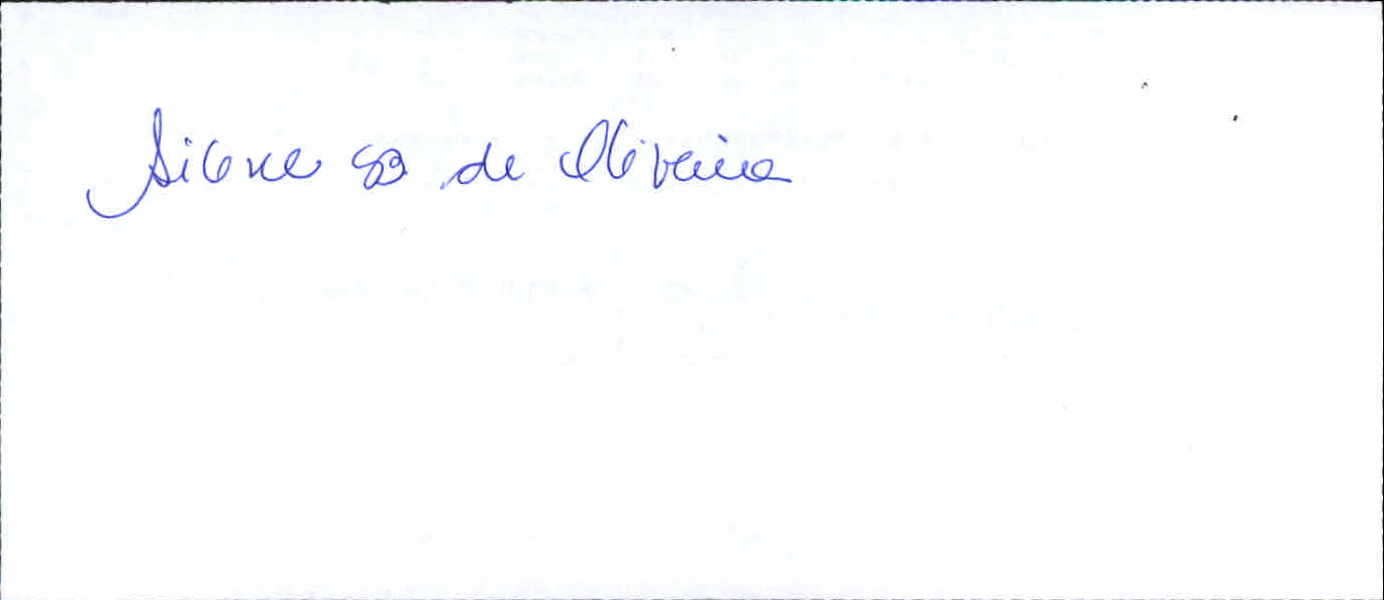 Silene Sa de Oliveira